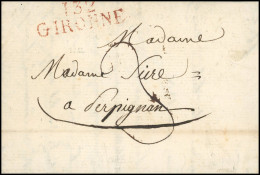 132
GIRONNE
Madame
Madame
a Perpignan